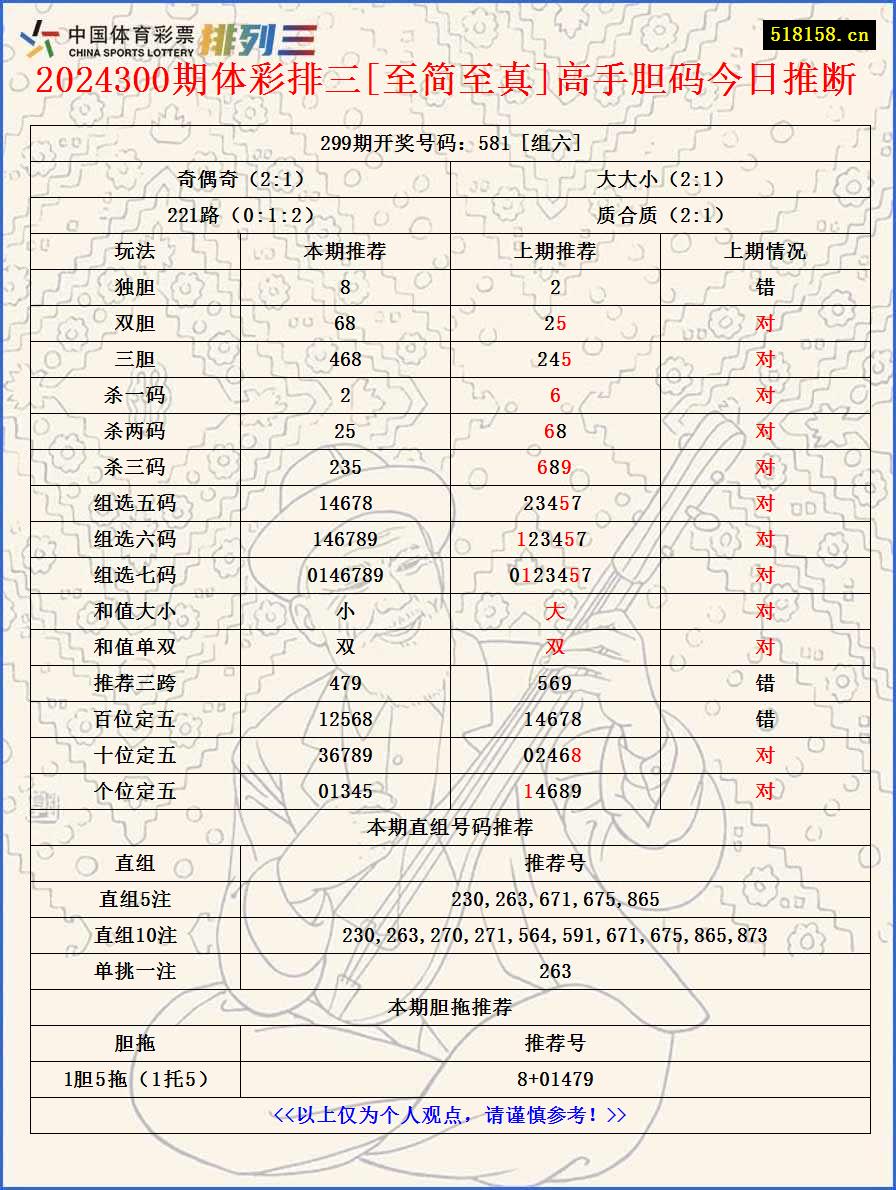 中国体育彩票
CHINA SPORTS LOTTERY
排列三
518158.cn
2024300期体彩排三[至简至真]高手胆码今日推断
299期开奖号码：581 [组六]
奇偶奇（2:1） 大大小（2:1）
221路（0:1:2） 质合质（2:1）
玩法 本期推荐 上期推荐 上期情况
独胆 8 2 错
双胆 68 25 对
三胆 468 245 对
杀一码 2 6 对
杀两码 25 68 对
杀三码 235 689 对
组选五码 14678 23457 对
组选六码 146789 123457 对
组选七码 0146789 0123457 对
和值大小 小 大 对
和值单双 双 双 对
推荐三跨 479 569 错
百位定五 12568 14678 错
十位定五 36789 02468 对
个位定五 01345 14689 对
本期直组号码推荐
直组 推荐号
直组5注 230,263,671,675,865
直组10注 230,263,270,271,564,591,671,675,865,873
单挑一注 263
本期胆拖推荐
胆拖 推荐号
1胆5拖（1托5） 8+01479
<<以上仅为个人观点，请谨慎参考！>>